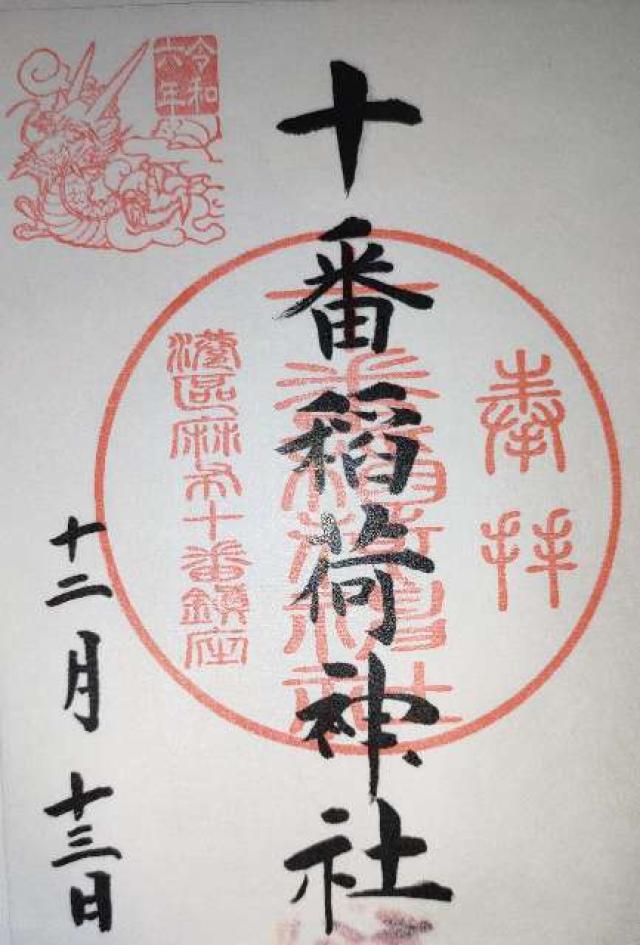 奉拝
十番稲荷神社
港区麻布十番鎮座
令和
六年
十二月十三日